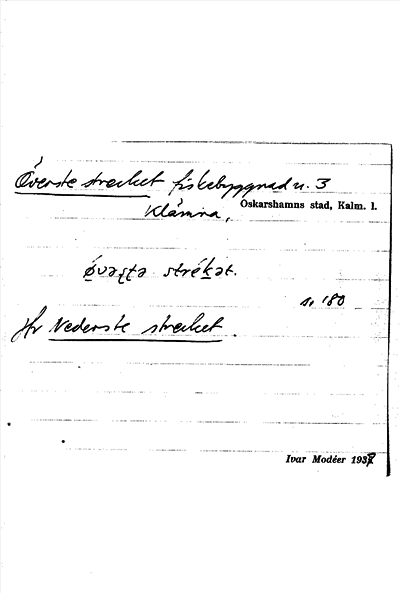 Överste strecket fiskebyggnad n. 3
Klämna, Oskarshamns stad, Kalm. l.
øvəʂʈə strékət.
s. 180
Jfr Nederste strecket.
Ivar Modéer 1937